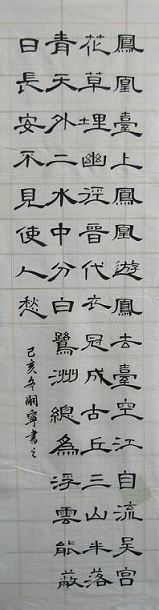 鳳凰臺上鳳凰遊鳳去臺空江自流吳宮
花草埋幽徑晉代衣冠成古丘三山半落
青天外二水中分白鷺洲總為浮雲能蔽
日長安不見使人愁
己亥冬嗣寧書之